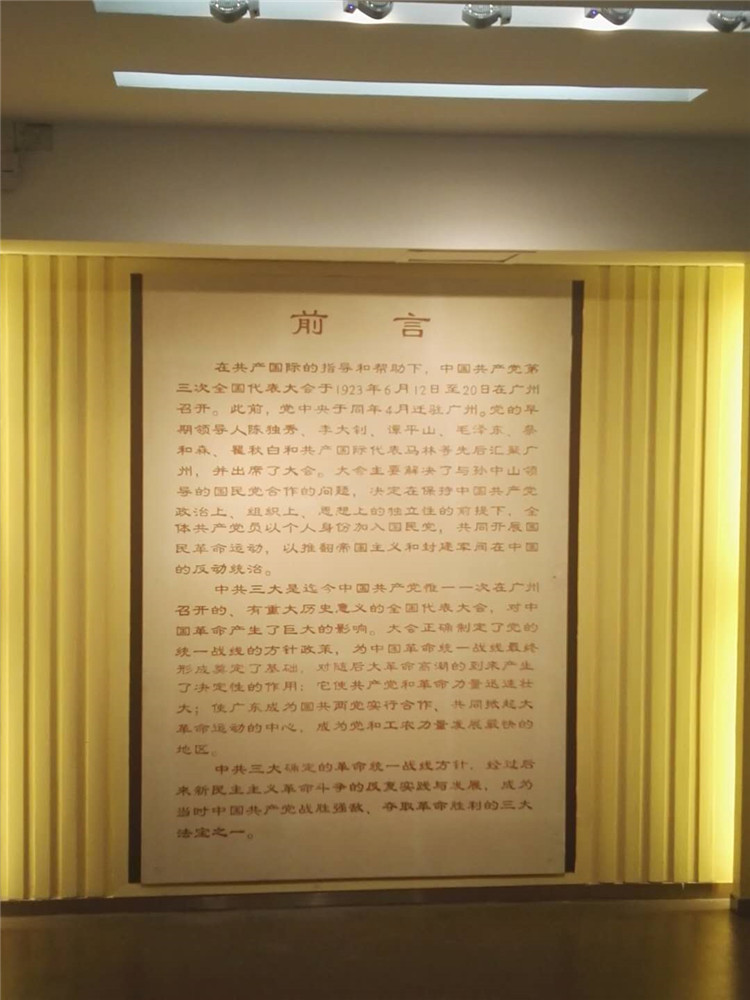 前 言
在共产国际的指导和帮助下，中国共产党第
三次全国代表大会于1923年6月12日至20日在广州
召开。此前，党中央于同年4月迁驻广州。党的早
期领导人陈独秀、李大钊、谭平山、毛泽东、蔡
和森、瞿秋白和共产国际代表马林等先后汇聚广
州，并出席了大会。大会主要解决了与孙中山领
导的国民党合作的问题，决定在保持中国共产党
政治上、组织上、思想上的独立性的前提下，全
体共产党员以个人身份加入国民党，共同开展国
民革命运动，以推翻帝国主义和封建军阀在中国
的反动统治。
中共三大是迄今中国共产党惟一一次在广州
召开的、有重大历史意义的全国代表大会，对中
国革命产生了巨大的影响。大会正确制定了党的
统一战线的方针政策，为中国革命统一战线最终
形成奠定了基础，对随后大革命高潮的到来产生
了决定性的作用；它使共产党和革命力量迅速壮
大；使广东成为国共两党实行合作、共同掀起大
革命运动的中心，成为党和工农力量发展最快的
地区。
中共三大确定的革命统一战线方针，经过后
来新民主主义革命斗争的反复实践与发展，成为
当时中国共产党战胜强敌、夺取革命胜利的三大
法宝之一。